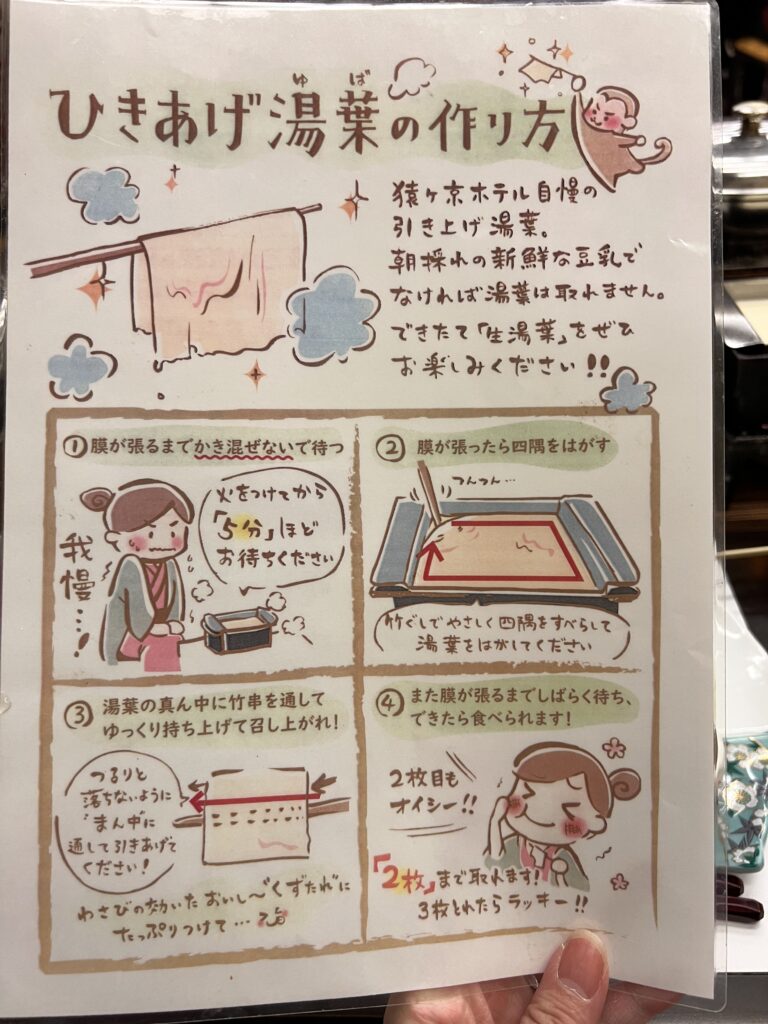 ゆば
ひきあげ湯葉の作り方
猿ヶ京ホテル自慢の
引き上げ湯葉。
朝採れの新鮮な豆乳で
なければ湯葉は取れません。
できたて「生湯葉」をぜひ
お楽しみください!!
①膜が張るまでかき混ぜないで待つ
火をつけてから
「5分」ほど
お待ちください
我慢…!
② 膜が張ったら四隅をはがす
つんつん…
竹ぐしでやさしく四隅をすべらして
湯葉をはがしてください
③ 湯葉の真ん中に竹串を通して
ゆっくり持ち上げて召し上がれ!
つるりと
落ちないように
"まん中"に
通して引きあげて
ください!
わさびの効いたおいし〜"くずたれ"に
たっぷりつけて…
④ また膜が張るまでしばらく待ち、
できたら食べられます!
2枚目も
オイシー!!
「2枚」まで取れます!
3枚とれたらラッキー!!